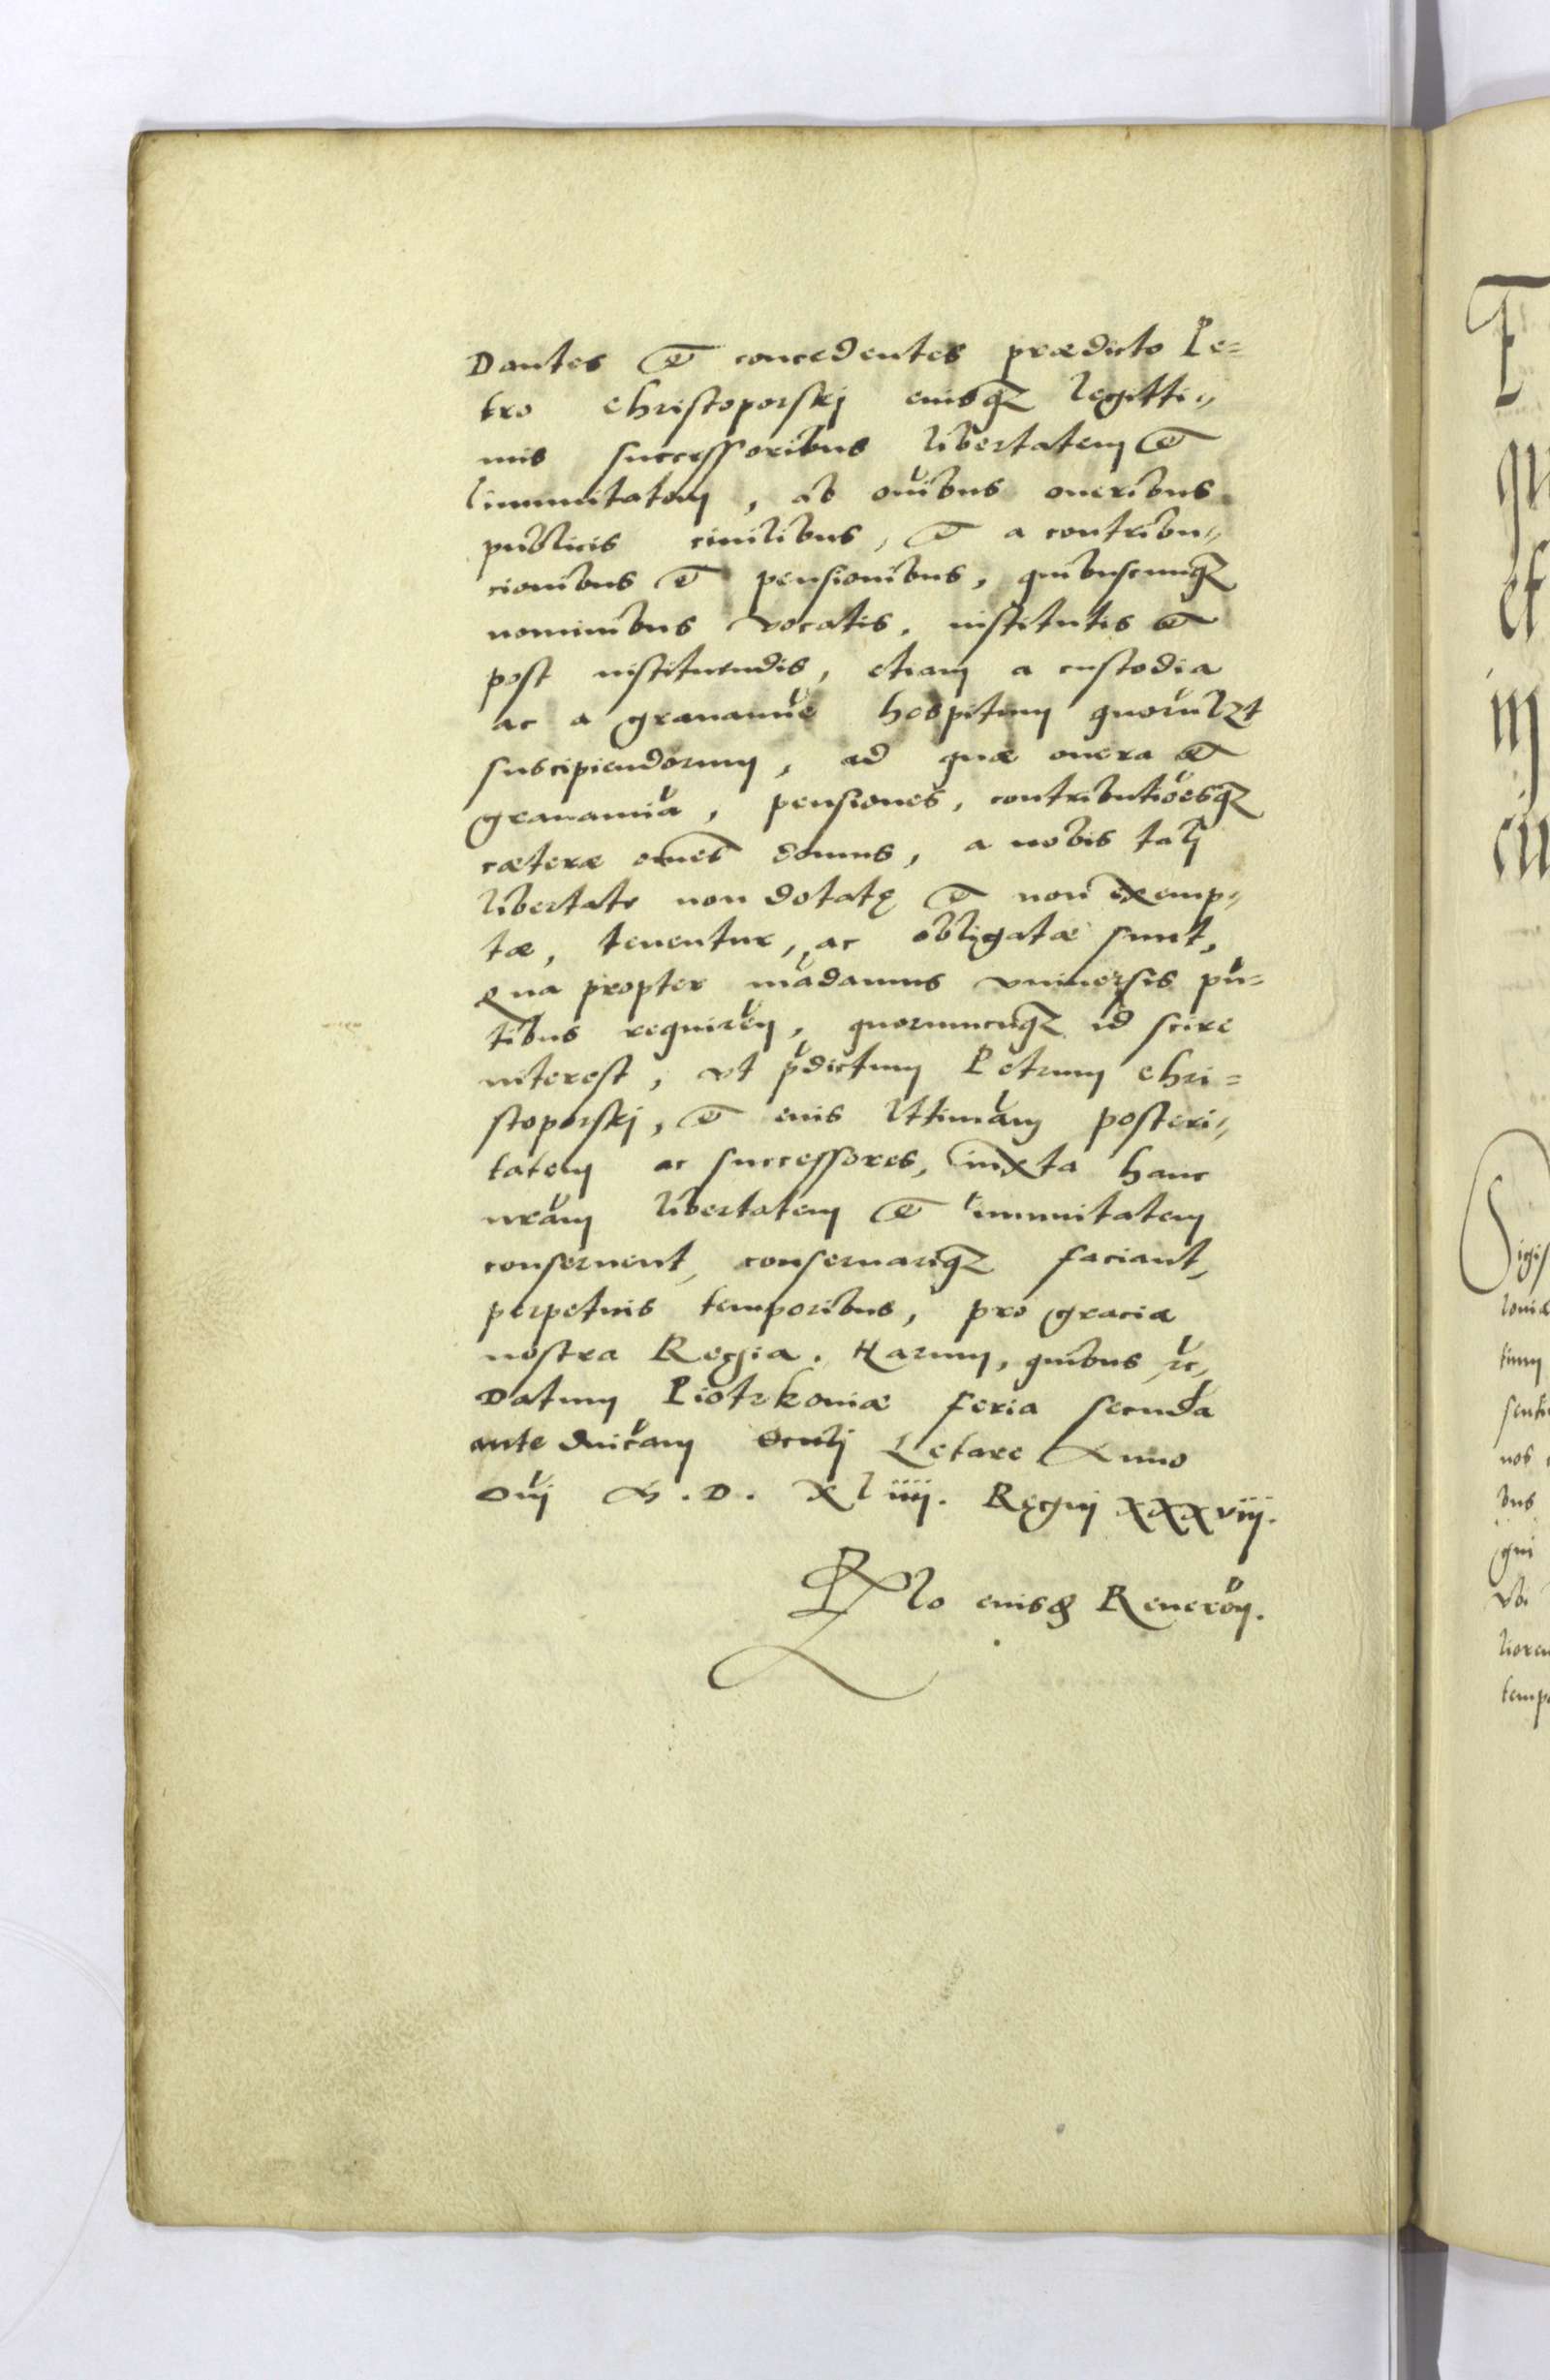 Dantes et concedentes prædicto Pe=
tro Christoporskj eiusq₃ legitti=
mis successoribus libertatem et
immunitatem, ab oı̃bus oneribus
publicis ciuilibus, et a contribu=
cionibus et pensionibus, quibuscunq₃
nominibus vocatis, institutis et
post instituendis, etiam a custodia
ac a grauamĩe hospitum quorũlzt
suscipiendorum, ad quæ onera et
grauamĩa, pensiones, contributiõesq₃
cæteræ omẽs domus, a nobis talj
libertate non dotatę et non exemp=
tæ, tenentur, ac obligatæ sunt,
Qua propter mãdamus vniuersis pñ=
tibus requireñ, quorumcuq₃ id scire
interest, vt p̃dictum Petrum Chri=
stoporskj, et eius lttimãm posteri=
tatem ac successores, iuxta hanc
nrãm libertatem et immunitatem
conseruent, conseruariq₃ faciant,
perpetuis temporibus, pro gracia
nostra Regia. Harum, quibus ꝛc,
Datum Piotrkouiæ feria secunda
ante dnicãm Oculj Letare Anno
Dñi M.D. Xliiij. Regnj XXXviij.
Rlo eiusd Reuereñ.
E
qu
ef
in
cu
Sigis
loniæ
tium
senti
nos
bus
qui
vbi
liorem
tempo